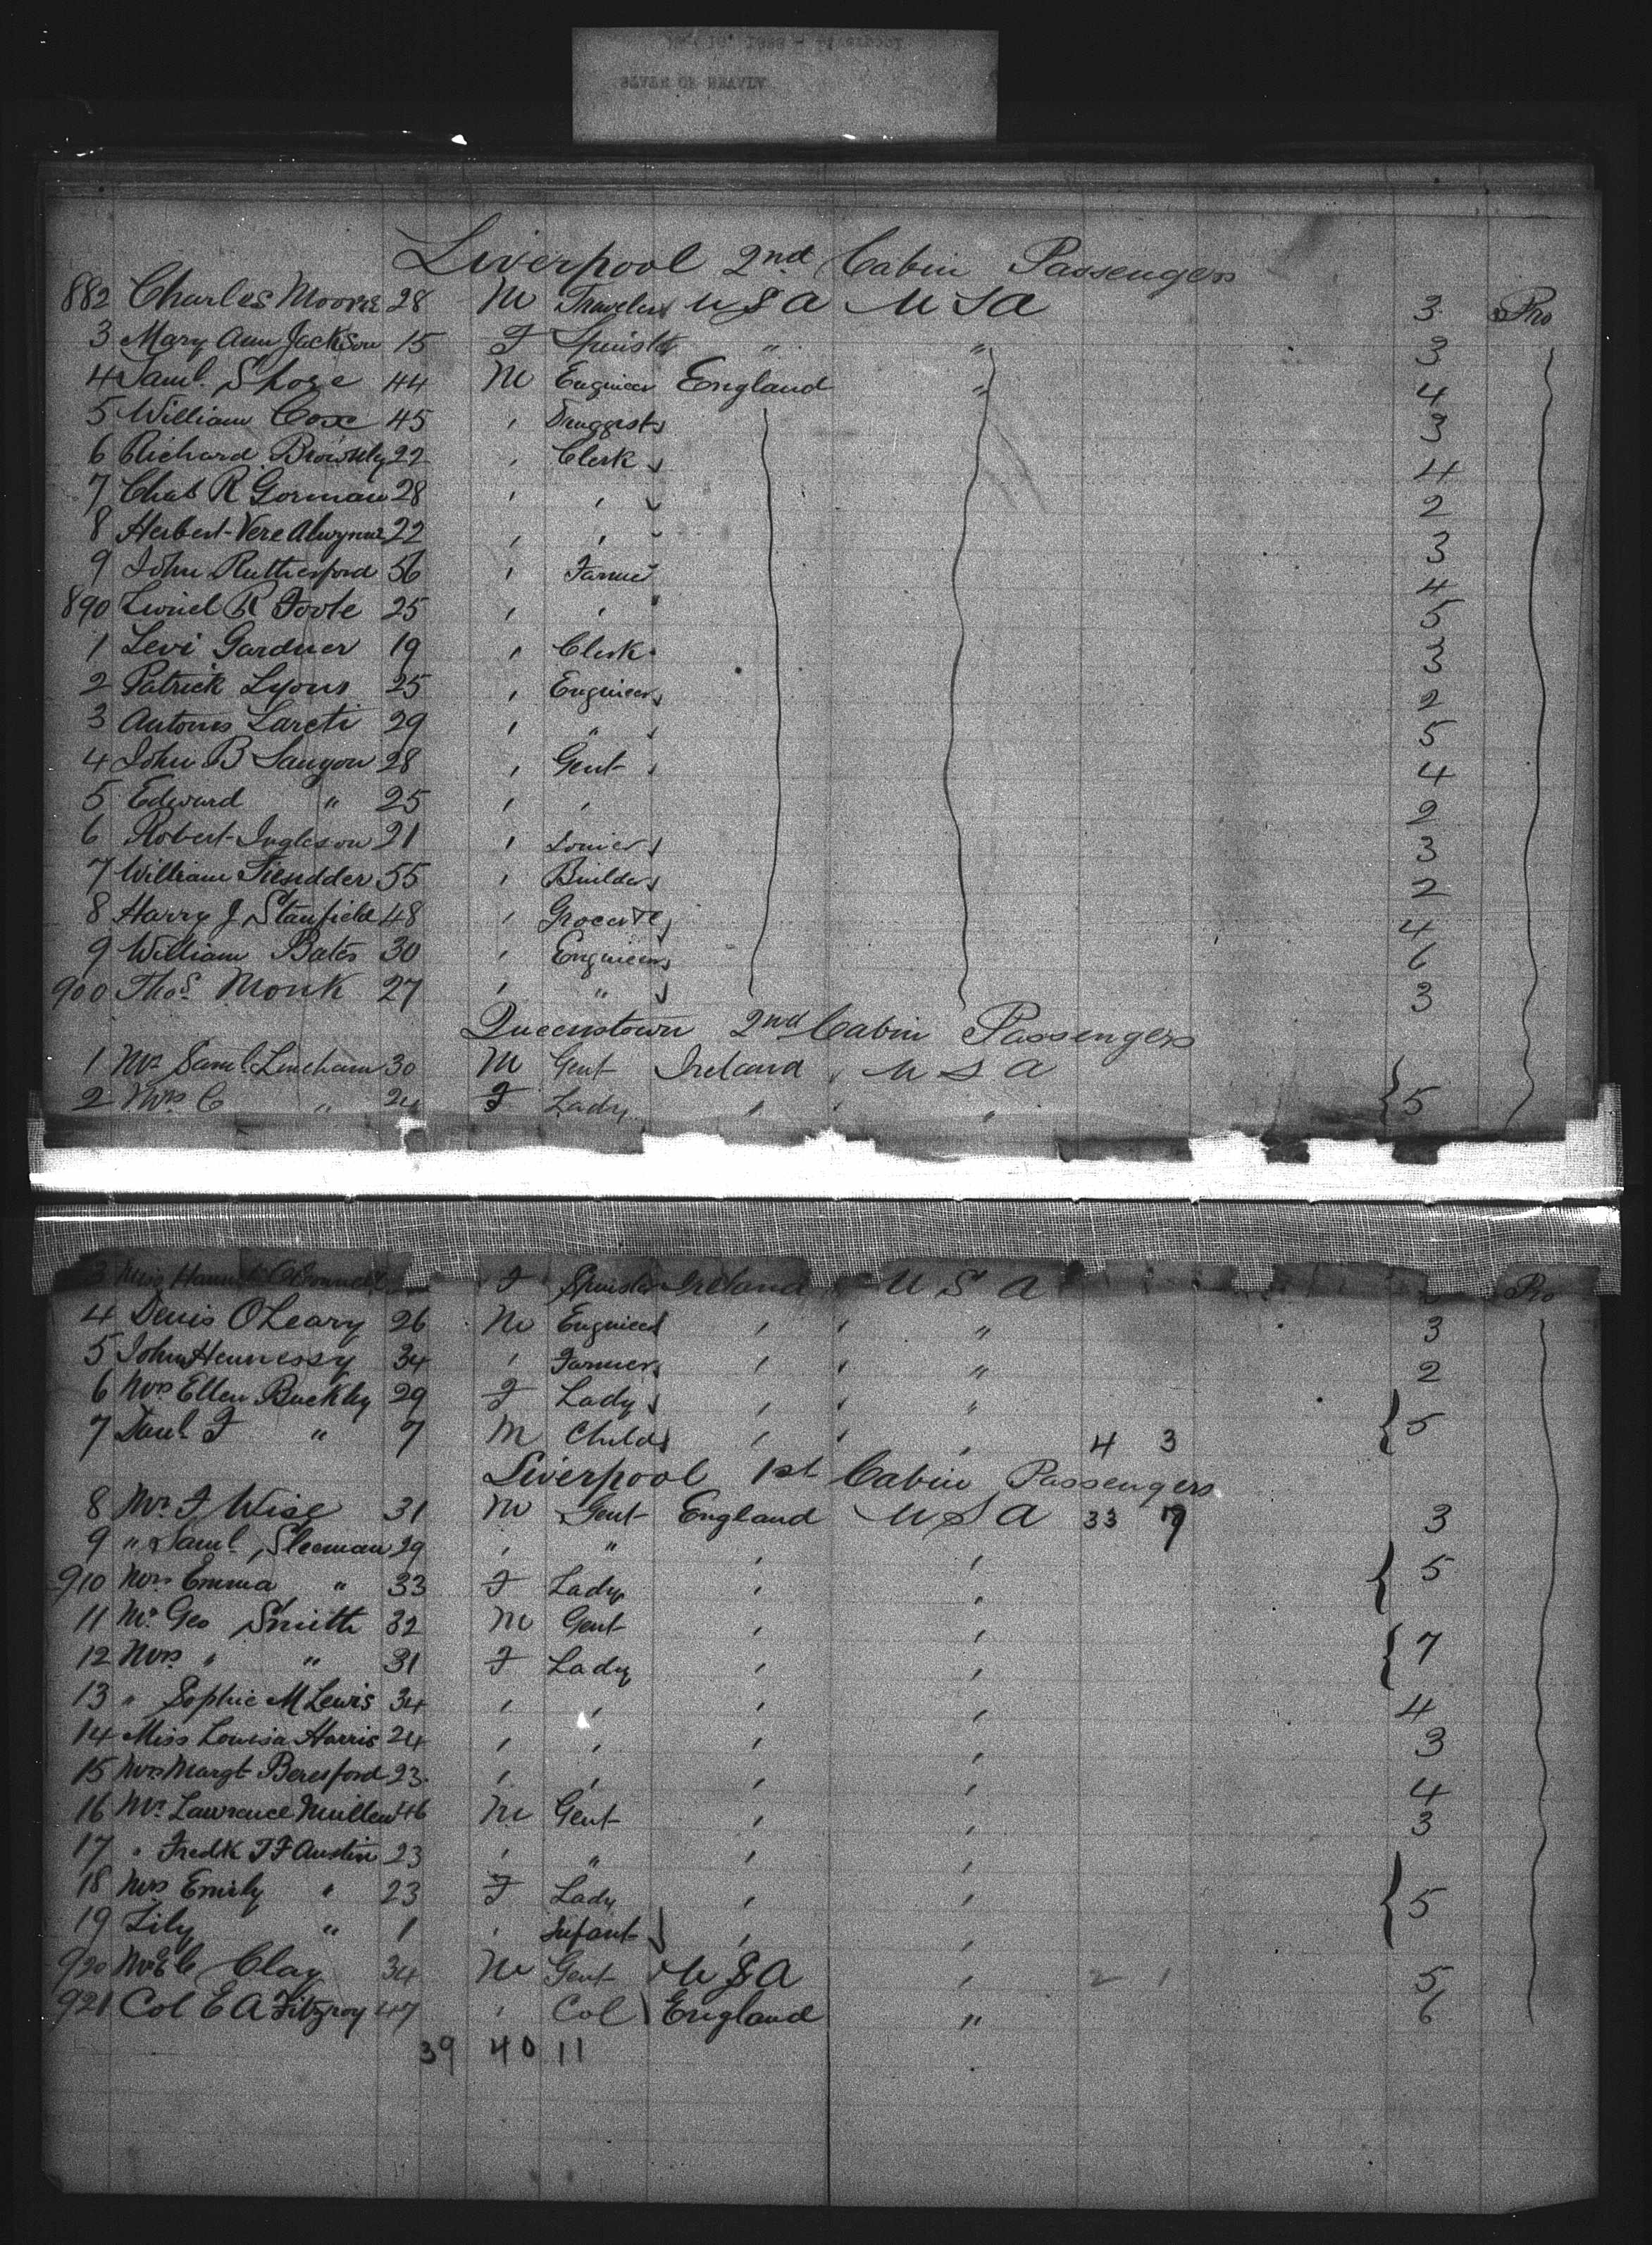 Liverpool 2nd Cabin Passengers
882 Charles Moore 28 M Traveler U S A U S A 3 Pro
3 Mary Ann Jackson 15 F Spinster " " 3
4 Saml. Shore 44 M Engineer England " 4
5 William Cox 45 " Druggist 3
6 Richard 22 " Clerk 4
7 Chas R Gorman 28 " " 2
8 Herbert Vere Alwynne 22 " " 3
9 John Rutherford 56 " Farmer 4
890 Lionel R Foote 25 " " 5
1 Levi Gardner 19 " Clerk 3
2 Patrick Lyons 25 " Engineer 2
3 Lareti 29 " " 5
4 John B 28 " Gent 4
5 Edward " 25 " " 2
6 Robert Ingleson 21 " 3
7 William 55 " Builder 2
8 Harry J Stanfield 48 " 4
9 William Bates 30 " Engineer 6
900 Thos Monk 27 " " 3
Queenstown 2nd Cabin Passengers
1 Mr Saml Lineham 30 M Gent Ireland U S A
2 Mrs C " 24 F Lady " " 5
3 Miss F Spinster Ireland U S A Pro
4 Denis OLeary 26 M Engineer " " 3
5 John Hennessy 34 " Farmer " " 2
6 Mrs Ellen Buckley 29 F Lady " " 5
7 Danl F " 7 M Child " " 4 3
Liverpool 1st Cabin Passengers
8 Mr F Wise 31 M Gent England U S A 33 3
9 " Saml Sleeman 29 " " " " 5
910 Mrs Emma " 33 F Lady " "
11 Mr Geo Smith 32 M Gent " " 7
12 Mrs " " 31 F Lady " "
13 " Sophie M Lewis 34 " " " " 4
14 Miss Louisa Harris 24 " " " " 3
15 Mrs Margt Beresford 23 " " " " 4
16 Mr Lawrence Mullen 46 M Gent " " 3
17 " Fredk T F Austin 23 " " " " 5
18 Mrs Emily " 23 F Lady " "
19 Lily " 1 " Infant " "
920 Clay 34 M Gent U S A " 2 1 5
921 Col E A Fitzroy 47 " Col England " 6
39 40 11